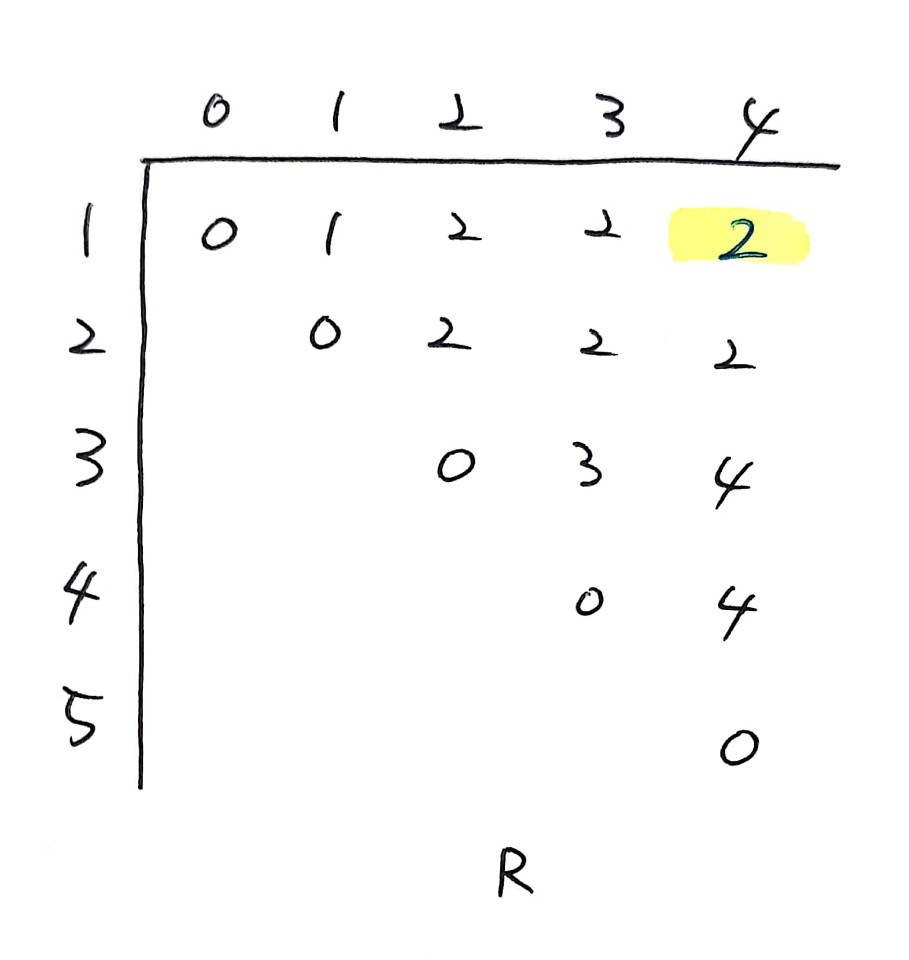 0 1 2 3 4
1 0 1 2 2 2
2 0 2 2 2
3 0 3 4
4 0 4
5 0
R